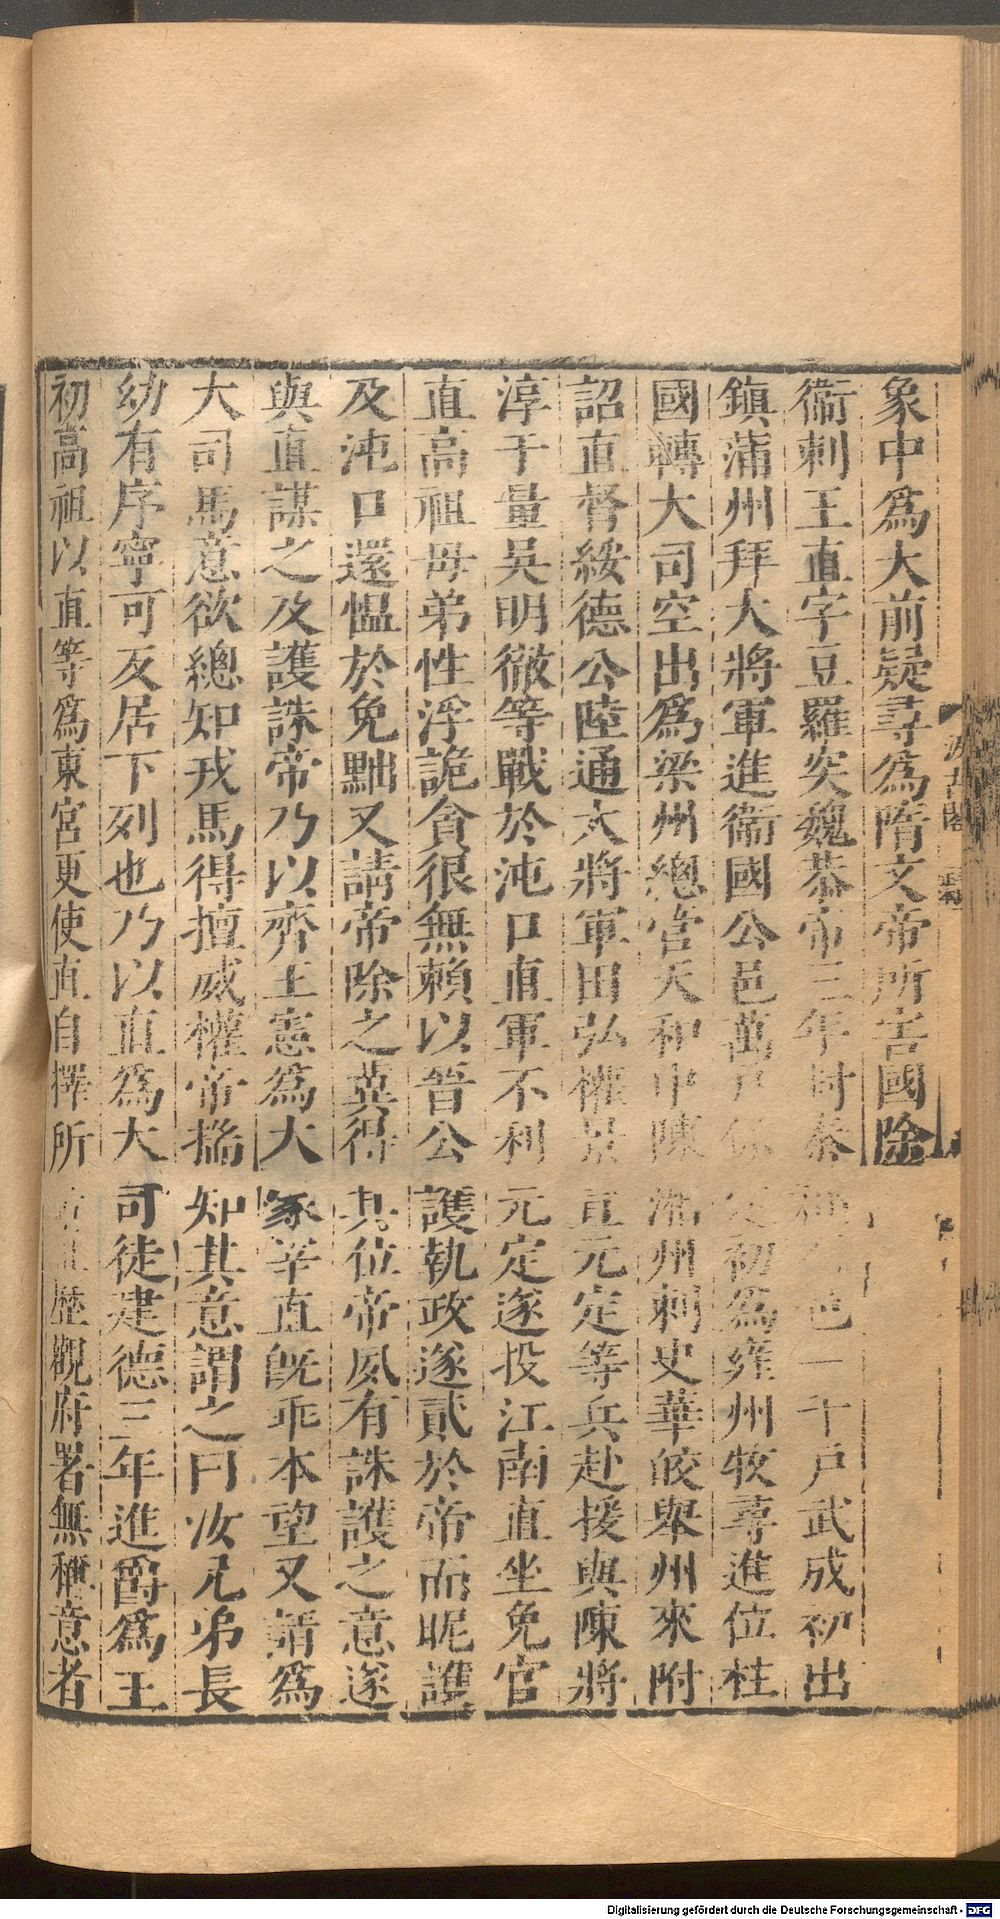 象中爲大前疑尋爲隋文帝所害國除
衞剌王直字豆羅突魏恭帝三年封秦郡公邑一千戸武成初出
鎮蒲州拜大將軍進衞國公邑萬戸保定初爲雍州牧尋進位柱
國轉大司空出爲梁州總管天和中陳湘州刺史華皎舉州來附
詔直督綏德公陸通大將軍田弘權景宣元定等兵赴援與陳將
淳于量吳明徹等戰於沌口直軍不利元定遂投江南直坐免官
直高祖母弟性浮詭貪很無賴以晉公護執政遂貳於帝而昵護
及沌口還愠於免黜又請帝除之冀得其位帝夙有誅護之意遂
與直謀之及護誅帝乃以齊王憲爲大冢宰直旣乖本望又請爲
大司馬意欲總知戎馬得擅威權帝揣知其意謂之曰汝兄弟長
幼有序寧可反居下列也乃以直爲大司徒建德三年進爵爲王
初高祖以直等爲東宮更使直自擇所居直歷觀府署無稱意者
汲古閣
Digitalisierung gefördert durch die Deutsche Forschungsgemeinschaft - DFG